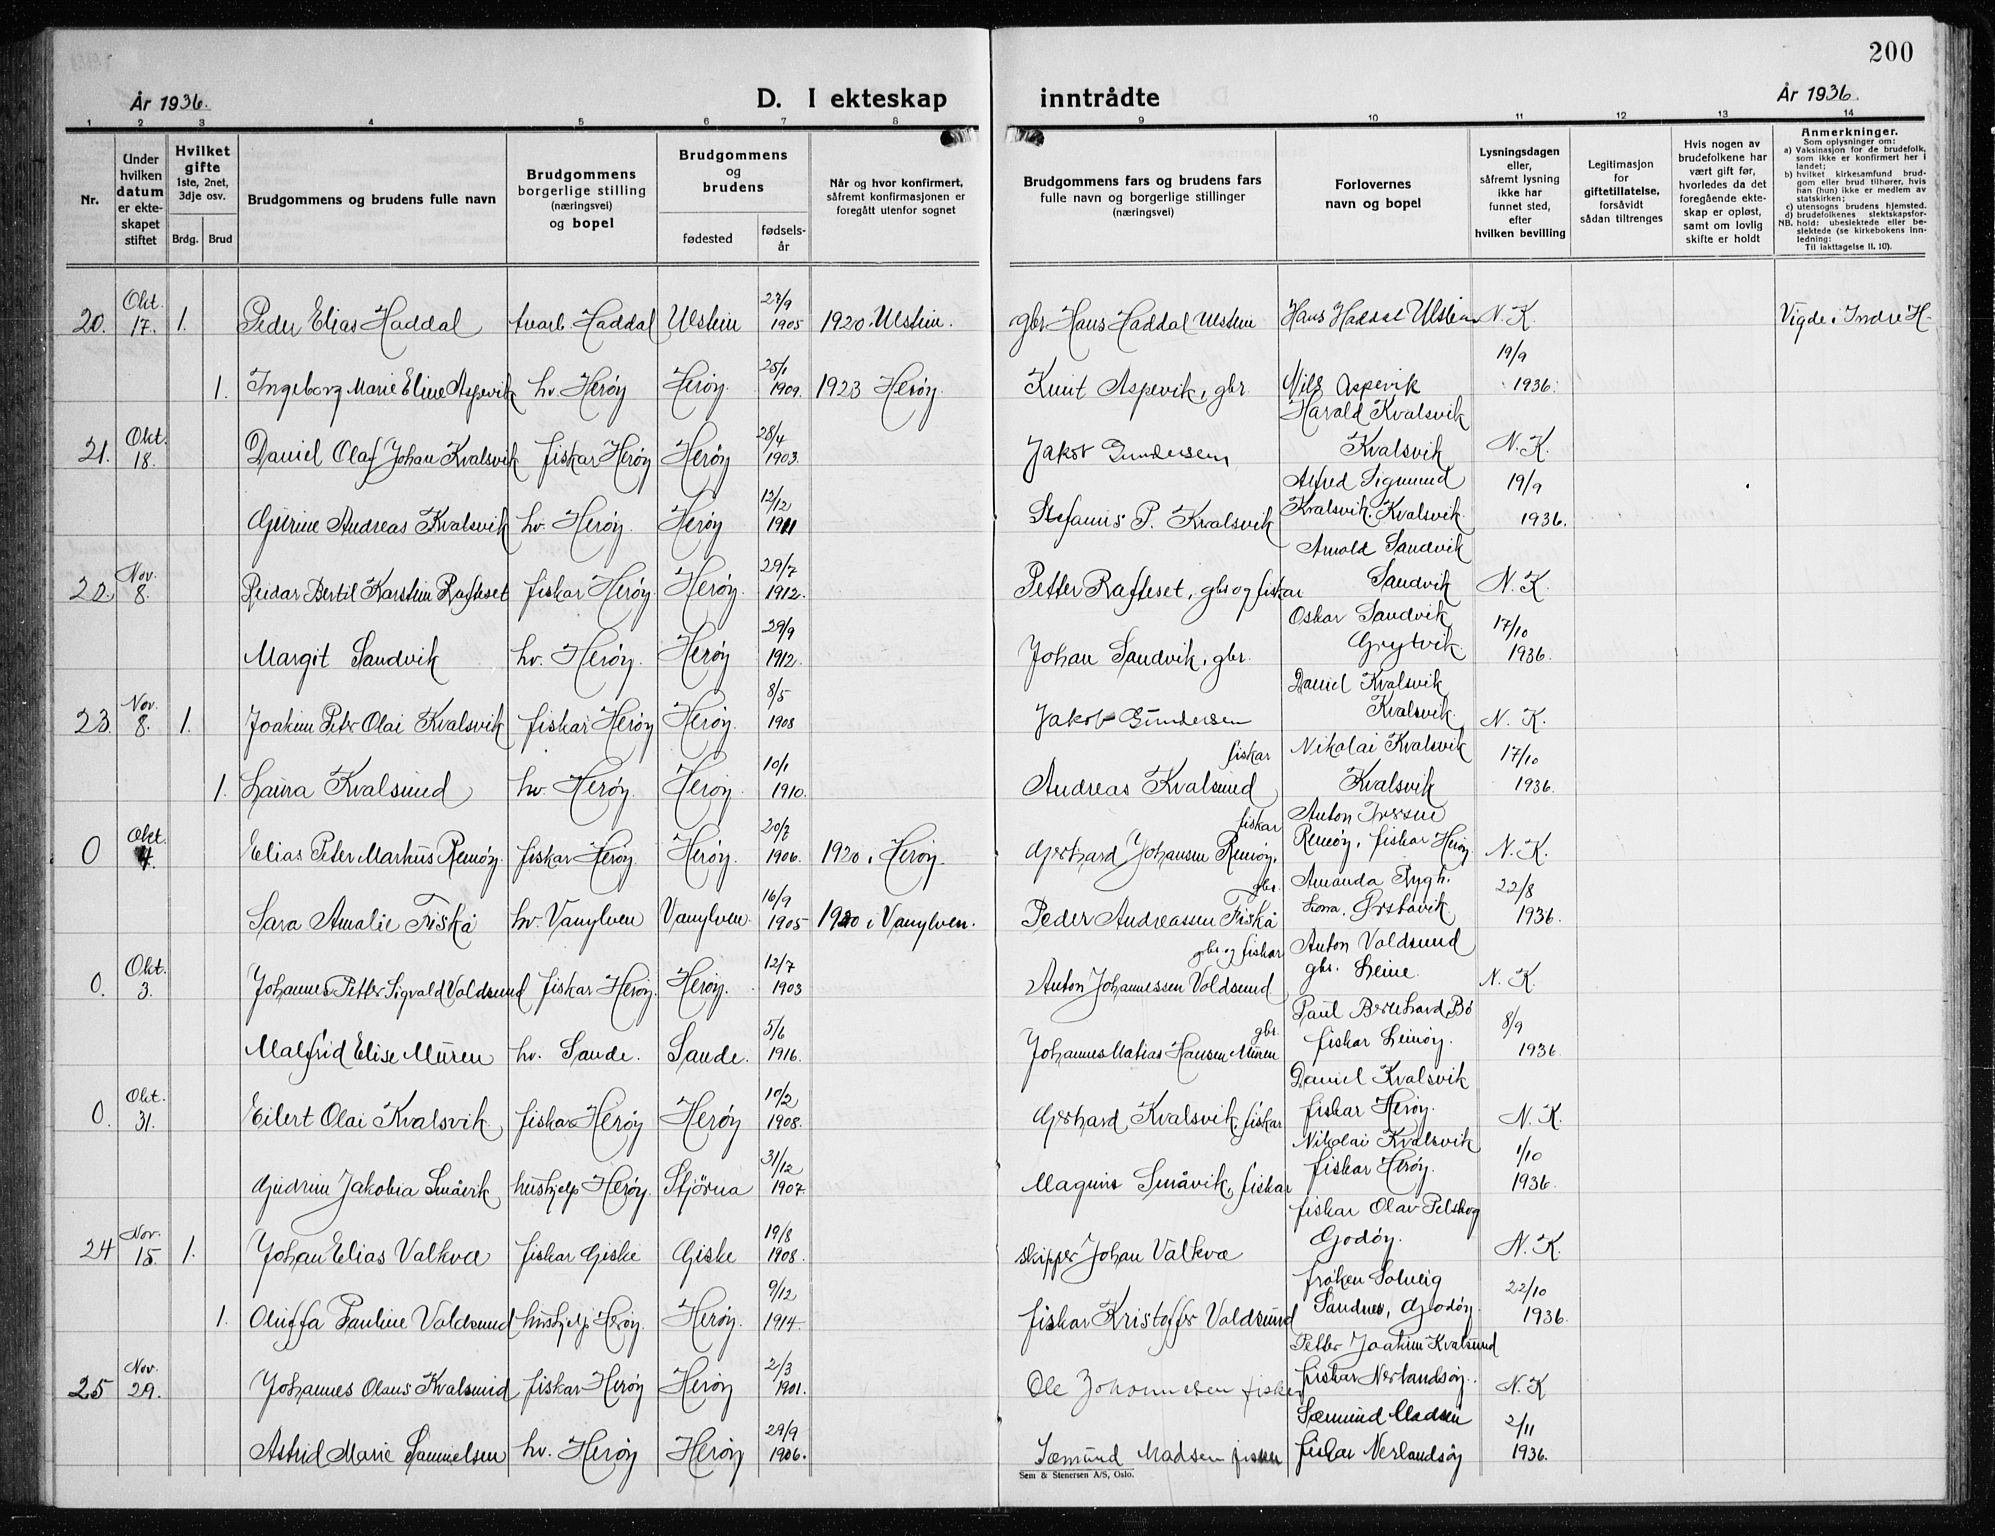 200
År 1936.
D. I ekteskap inntrådte
År 1936.
1 2 3 4 5 6 7 8 9 10 11 12 13 14
Nr.
Under hvilken datum er ekteskapet stiftet
Hvilket gifte 1ste, 2net, 3dje osv.
Brdg. Brud
Brudgommens og brudens fulle navn
Brudgommens borgerlige stilling (næringsvei) og bopel
Brudgommens og brudens
fødested
fødselsår
Når og hvor konfirmert, såfremt konfirmasjonen er foregått utenfor sognet
Brudgommens fars og brudens fars fulle navn og borgerlige stillinger (næringsvei)
Forlovernes navn og bopel
Lysningsdagen eller, såfremt lysning ikke har funnet sted, efter hvilken bevilling
Legitimasjon for giftetillatelse, forsåvidt sådan tiltrenges
Hvis nogen av brudefolkene har vært gift før, hvorledes da det foregående ekteskap er opløst, samt om lovlig skifte er holdt
Anmerkninger.
Som oplysninger om:
a) Vaksinasjon for de brudefolk, som ikke er konfirmert her i landet;
b) hvilket kirkesamfund brudgom eller brud tilhører, hvis han (hun) ikke er medlem av statskirken;
c) utensogns brudens hjemsted.
d) brudefolkenes slektskapsforhold: ubeslektede eller beslektede (se kirkebokens Innledning:
NB. Til iakttagelse II. 10).
20. Okt. 17. 1. Peder Elias Haddal tvarb. Haddal Ulstein 27/9 1905 1920. Ulstein. gbr. Hans Haddal Ulstein Hans Haddal Ulstein N. K. Vigde i Indre H.
1. Ingeborg Marie Eline Aspevik hv. Herøy Herøy. 25/1 1909. 1923 Herøy. Knut Aspevik, gbr. Nils Aspevik 19/9 1936.
21. Okt. 18. Daniel Olaf Johan Kvalsvik fiskar Herøy Herøy 28/4 1903. Jakob Gundersen Harald Kvalsvik Kvalsvik N. K.
Gurine Andreas Kvalsvik hv. Herøy. Herøy 12/12 1911 Stefanus P. Kvalsvik Alfred Sigmund Kvalsvik. Kvalsvik. 19/9 1936.
22. Nov. 8. Reidar Bertil Karstein Rafteset fiskar Herøy Herøy. 29/7 1912. Petter Rafteset, gbr og fiskar Arnold Sandvik Sandvik N. K.
Margit Sandvik hv. Herøy. Herøy 29/9 1912. Johan Sandvik, gbr. Oskar Sandvik Grytvik. 17/10 1936.
23. Nov. 8. 1. Joakim Peter Olai Kvalsvik fiskar Herøy Herøy. 8/5 1908 Jakob Gundersen Daniel Kvalsvik Kvalsvik. N. K.
1. Laura Kvalsund hv. Herøy. Herøy. 10/1 1910. Andreas Kvalsund fiskar Nikolai Kvalsvik Kvalsvik 17/10 1936.
0 Okt 4. Elias Peter Markus Remøy. fiskar Herøy Herøy. 20/7 1906. 1920 i Herøy. Gerhard Johansen Remøy, fiskar Anton Iversen Remøy, fiskar Herøy. N. K.
Sara Amalie Fiskå hv. Vanylven Vanylven. 16/9 1905 1920 i Vanylven. Peder Andreassen Fiskå gbr. Amanda Rygh. Ørstavik. 22/8 1936.
0. Okt. 3. Johannes Petter Sigvald Voldsund fiskar Herøy. Herøy. 12/7 1903 Anton Johannessen Voldsund gbr og fiskar Anton Voldsund gbr. Leine. N. K.
Malfrid Elise Muren hv. Sande. Sande. 5/6 1916. Johannes Matias Hansen Muren gbr. Paul Bernhard Bø fiskar Leinøy. 8/9 1936.
0. Okt. 31. Eilert Olai Kvalsvik fiskar Herøy Herøy 17/2 1908. Gerhard Kvalsvik, fiskar Daniel Kvalsvik fiskar Herøy. N. K.
Gudrun Jakobia Småvik hushjelp Herøy. Stjørna 31/12 1907. Magnus Småvik, fiskar Nikolai Kvalsvik fiskar Herøy. 1/10 1936.
24 Nov. 15. 1. Johan Elias Valkva fiskar Giske Giske 19/8 1908. skipper Johan Valkva fiskar Olav Pelskog Godøy. N. K.
1. Oluffa Pauline Voldsund hushjelp Herøy. Herøy. 9/12 1914. fiskar Kristoffer Voldsund frøken Solveig Sandnes, Godøy. 22/10 1936.
25 Nov. 29. Johannes Olaus Kvalsund fiskar Herøy Herøy 2/3 1901. Ole Johannesen fisker Petter Joakim Kvalsund fiskar Nerlandsøy. N. K
Astrid Marie Samuelsen hv. Herøy. Herøy 29/9 1906. Sæmund Madsen fisker Sæmund Madsen fiskar Nerlandsøy 2/11 1936.
Sem & Stenersen A/S, Oslo.